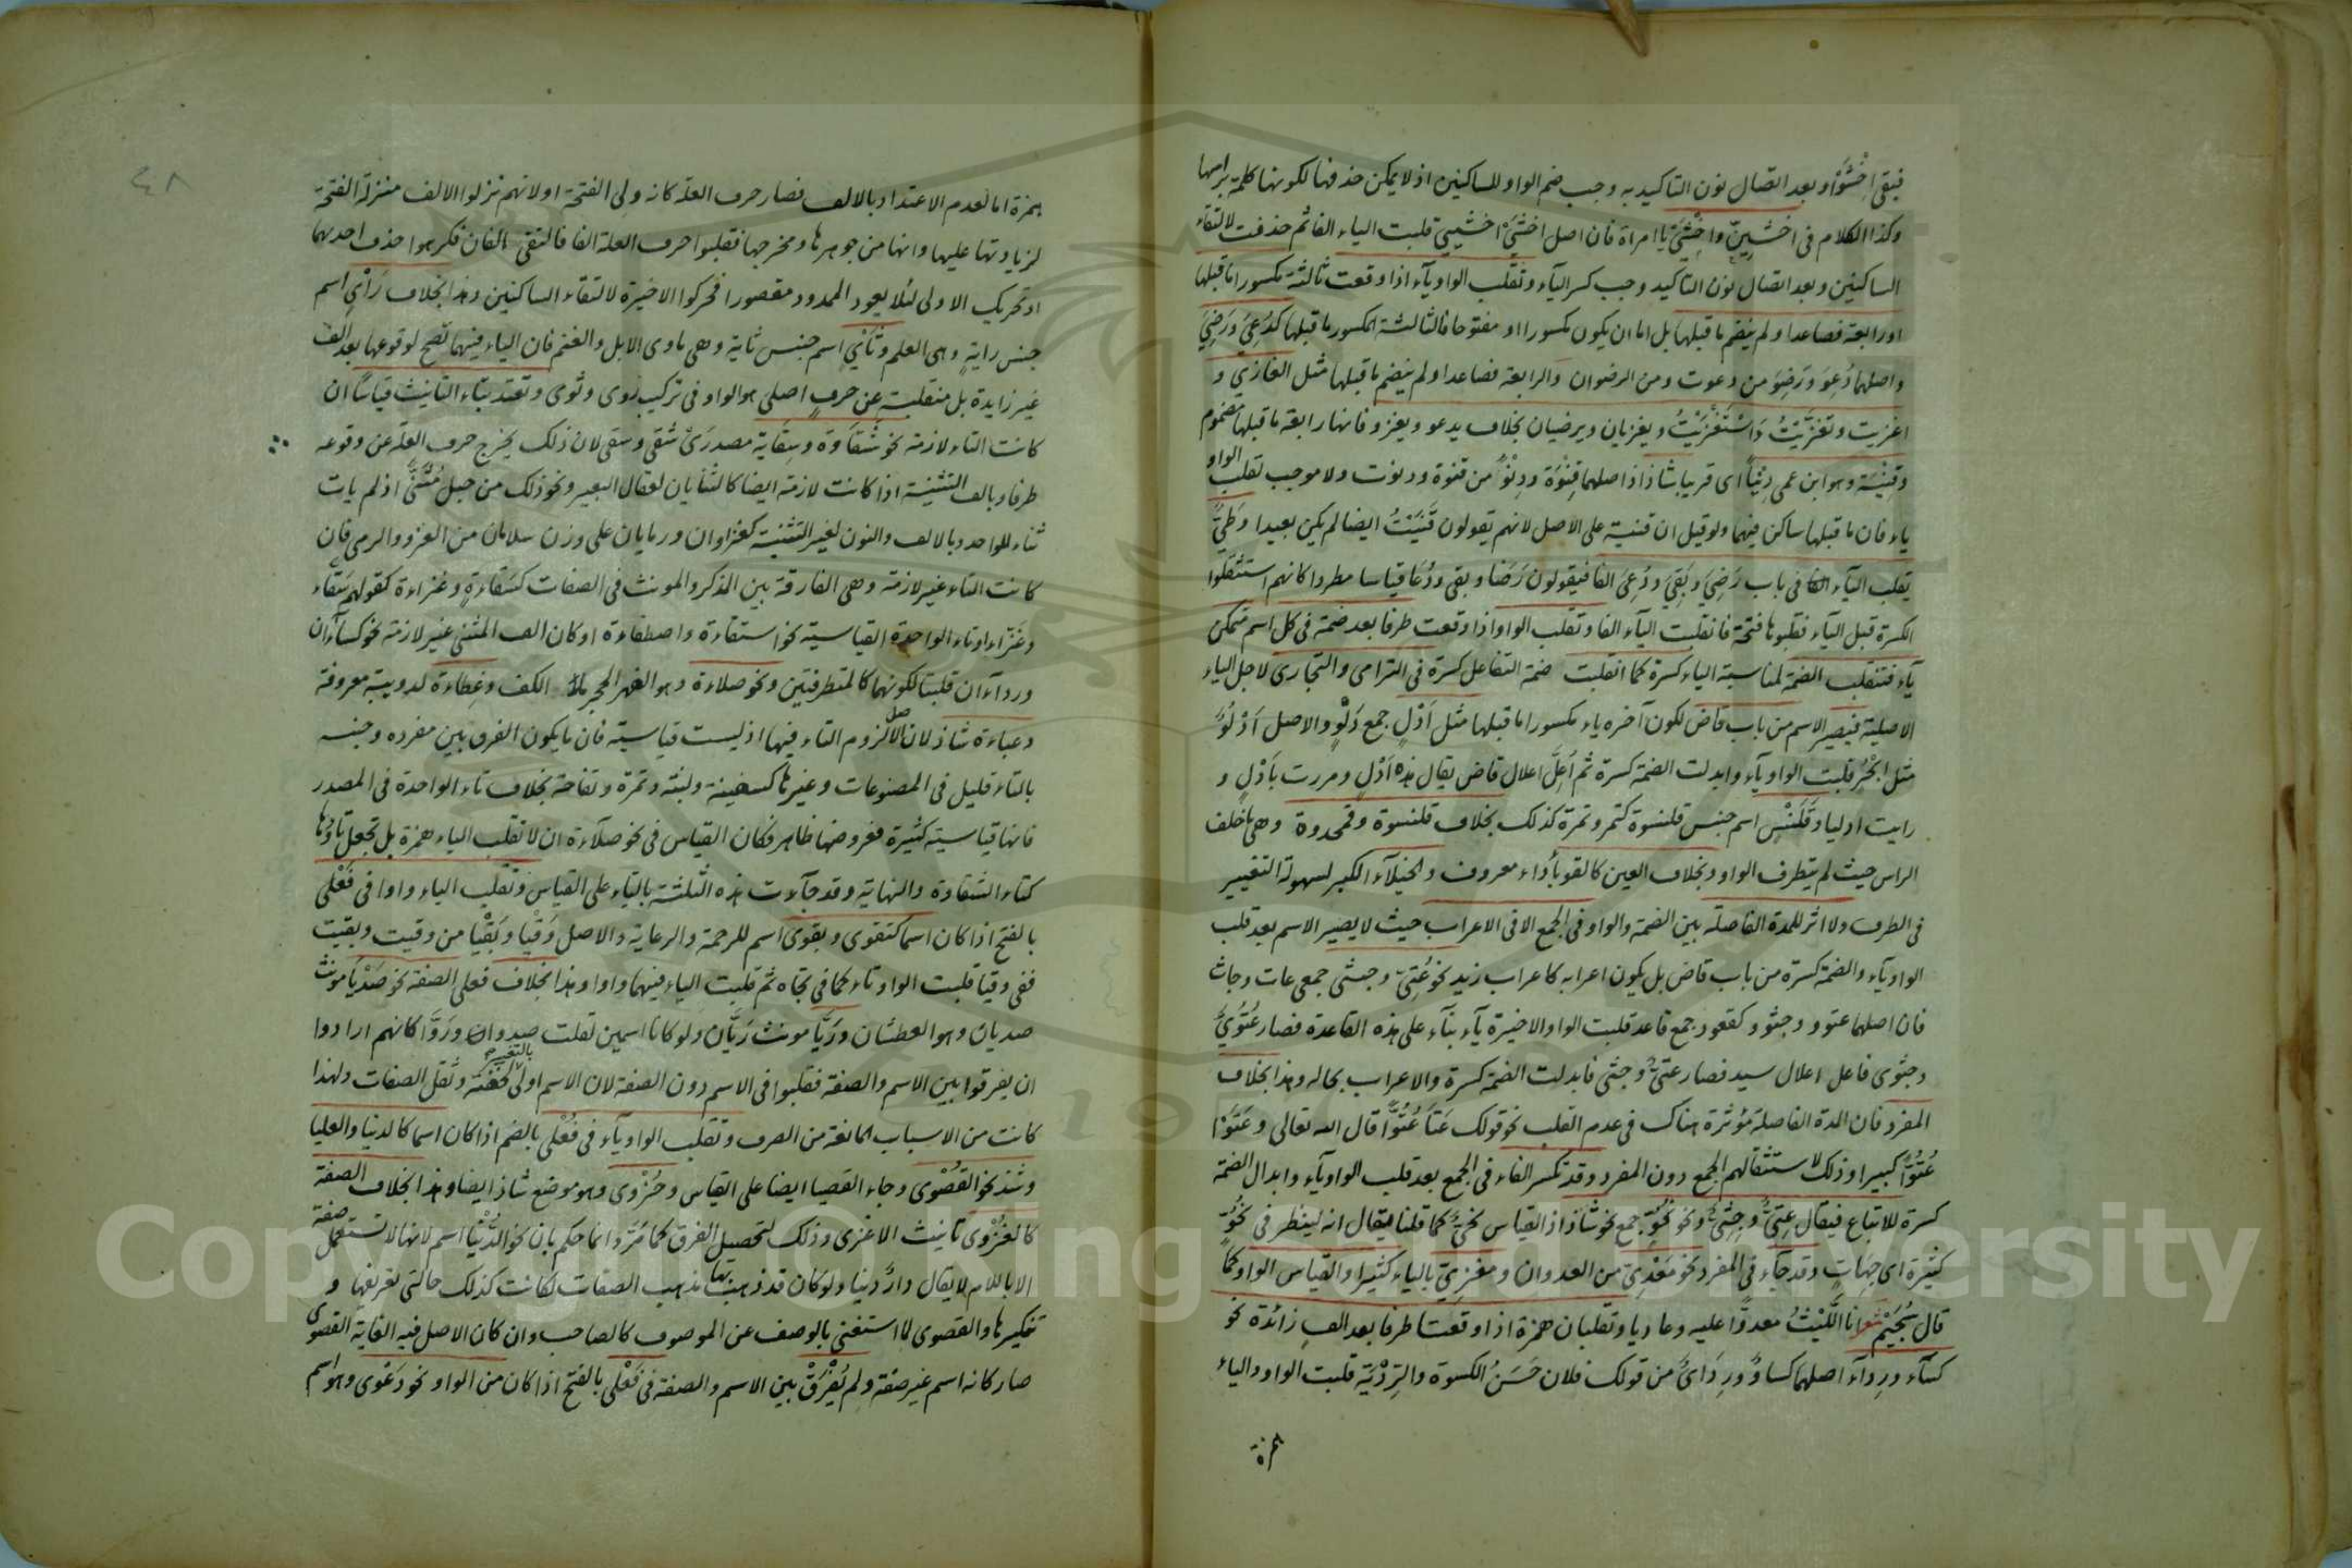 فبقى اخْشَوُا وبعد اتصال نون التاكيد به وجب ضم الواو للساكنين اذ لا يمكن حذفها لكونها كلمة براسها
وكذا الكلام في اخشيِنّ واخشَىْ يا امراة فان اصل اخشَىْ اخشيي قلبت الياء الفا ثم حذفت لالتقاء
الساكنين وبعد اتصال نون التاكيد وجب كسر الياء وتقلب الواو ياء اذا وقعت ثالثة مكسورا ما قبلها
او رابعة فصاعدا ولم ينضم ما قبلها بل اما ان يكون مكسورا او مفتوحا فالثالثة المكسور ما قبلها كدُعِىَ ورَضِىَ
واصلهما دُعِوَ ورَضِوَ من دعوت ومن الرضوان والرابعة فصاعدا ولم ينضم ما قبلها مثل الغازي و
اغزيت وتغزّيتُ واستَغْزَيْتُ ويغزيان ويرضيان بخلاف يدعو ويغزو فانها رابعة ما قبلها مضموم
وقِنْيَة وهو ابن عمى دِنْيًا اى قريبا شاذ اذ اصلهما قِنْوَة ودِنْوٌ من قنوة ودنوت ولا موجب تقلب الواو
ياء فان ما قبلها ساكن فيهما ولو قيل ان قنية على الاصل لانهم يقولون قَنَيْتُ ايضا لم يكن بعيدا وطَيّ
يقلب الياء الفا في باب رَضِىَ وبَقِىَ ودُعِىَ الفا فيقولون رَضَا وبقى ودُعَا قياسا مطردا كانهم استثقلوا
الكسرة قبل الياء فقلبوها فتحة فانقلبت الياء الفا وتقلب الواو اذا وقعت طرفا بعد ضمة في كل اسم متمكن
ياء فتنقلب الضمة لمناسبة الياء كسرة كما انقلبت ضمة التفاعل كسرة في الترامى والتجارى لاجل الياء
الاصلية فيصير الاسم من باب قاض لكون آخره ياء مكسورا ما قبلها مثل اَدْلٍ جمع دَلْوٍ والاصل اَدْلُوٌ
مثل ابْحُرٍ قلبت الواو ياء وابدلت الضمة كسرة ثم اُعِلَّ اعلال قاض يقال هذه اَدْلٍ ومررت باَدْلٍ و
رايت ادليا وقَلَنْسٍ اسم جنس قلنسوة كتمر وتمرة كذلك بخلاف قلنسوة وقمحدوة وهى ما خلف
الراس حيث لم يتطرف الواو وبخلاف العين كالقوباء داء معروف والخيلاء الكبر لسهولة التغيير
في الطرف ولا اثر للمدة الفاصلة بين الضمة والواو في الجمع الا في الاعراب حيث لا يصير الاسم بعد قلب
الواو ياء والضمة كسرة من باب قاض بل يكون اعرابه كاعراب زيد نحو عُتِىّ وجثى جمعى عات وجاث
فان اصلهما عتوو وجثوو كقعود جمع قاعد قلبت الواو الاخيرة ياء بناء على هذه القاعدة فصار عُتُوْىٌ
وجثوى فاعل اعلال سيد فصار عتىٌ وجثى فابدلت الضمة كسرة والاعراب بحاله وهذا بخلاف
المفرد فان المدة الفاصلة مؤثرة هناك في عدم القلب نحو قولك عَتَا عُتُوًّا قال الله تعالى وعَتَوْا
عُتُوًّا كبيرا وذلك لاستثقالهم الجمع دون المفرد وقد تكسر الفاء في الجمع بعد قلب الواو ياء وابدال الضمة
كسرة للاتباع فيقال عِتِىٌّ وجِثِىٌّ ونحو نُحُوٍّ جمع نحو شاذ اذ القياس نُحِىٌّ كما قلنا يقال انه لينظر في نُحُوٍّ
كثيرة اى جِهَاتٍ وقد جاء في المفرد نحو مَعْدِىّ من العدوان ومغزِىّ بالياء كثيرا والقياس الواو كما
قال سُحَيْمٌ شعر انا اللَّيْثُ معدوًّا عليه وعاديا وتقلبان همزة اذا وقعتا طرفا بعد الف زائدة نحو
كساء ورِداء اصلهما كساوٌ ورِدَاىٌ من قولك فلان حَسَنُ الكسوة والرِّدْيَة قلبت الواو والياء
همزة
٤٨
همزة اما لعدم الاعتداد بالالف فصار حرف العلة كانه ولى الفتحة او لانهم نزلوا الالف منزلة الفتحة
لزيادتها عليها وانها من جوهرها ومخرجها فقلبوا حرف العلة الفا فالتقى الفان فكرهوا حذف احديهما
او تحريك الاولى لئلا يعود الممدود مقصورا فحركوا الاخيرة لالتقاء الساكنين وهذا بخلاف رَاْىٍ اسم
جنس رايةٍ وهى العلم وثَاْىٍ اسم جنس ثاية وهى ماوى الابل والغنم فان الياء فيهما تصح لوقوعها بعد الف
غير زايدة بل منقلبة عن حرف اصلى هو الواو في تركيب روى وثوى وتعتد بتاء التانيث قياسًا ان
كانت التاء لازمة نحو شَقَاوَة وسِقَاية مصدرَىْ شقى وسقى لان ذلك يخرج حرف العلة عن وقوعه
طرفا وبالف التثنية اذا كانت لازمة ايضا كالثنايان لعقال البعير ونحو ذلك من حبل مُثَنًّى اذ لم يات
ثناء للواحد وبالالف والنون لغير التثنية كغزاوان ورمايان على وزن سلامان من الغزو والرمى فان
كانت التاء غير لازمة وهى الفارقة بين المذكر والمونث في الصفات كسَقّاءةٍ وغزاءة كقولهم سَقّاء
وغَزّاء او تاء الواحدة القياسية نحو استقاءة واصطفاءة او كان الف المثنى غير لازمة نحو كساءان
ورداءان قلبتا لكونهما كالمتطرفتين ونحو صلاءة وهو الفهر الحجر ملأ الكف وعِظاءة لدويبة معروفة
وعباءة شاذ لان الاصل لزوم التاء فيها اذ ليست قياسية فان ما يكون الفرق بين مفرده وجنسه
بالتاء قليل في المصنوعات وغيرها كسفينة ولبنة وتمرة وتفاحة بخلاف تاء الواحدة في المصدر
فانها قياسية كثيرة فعروضها ظاهر فكان القياس في نحو صلاءة ان لا تقلب الياء همزة بل تجعل تاؤها
كتاء الشقاوة والنهاية وقد جاءت هذه الثلثة بالياء على القياس وتقلب الياء واوا في فَعْلى
بالفتح اذا كان اسما كتقوى وبقوى اسم للرحمة والرعاية والاصل وَقْيَا وبَقْيَا من وقيت وبقيت
ففى وقيا قلبت الواو تاء كما في تجاه ثم قلبت الياء فيهما واوا وهذا بخلاف فعلى الصفة نحو صَدْيَا مونث
صديان وهو العطشان ورَيَّا مونث رَيَّان ولو كانا اسمين لقلت صدوا ورَوَّا كانهم ارادوا
ان يفرقوا بين الاسم والصفة فقلبوا في الاسم دون الصفة لان الاسم اولى بالتغيير لخفته وثقل الصفات ولهذا
كانت من الاسباب المانعة من الصرف وتقلب الواو ياء في فُعْلى بالضم اذا كان اسما كالدنيا والعليا
وشذ نحو القُصْوى وجاء القصيا ايضا على القياس وحُزْوى وهو موضع شاذ ايضا وهذا بخلاف الصفة
كالغُزْوى تانيث الاغزى وذلك لتحصيل الفرق كما مَرَّ وانما حكم بان نحو الدُّنْيا اسم لانها لا تستعمل صفة
الا باللام لا يقال دارٌ دنيا ولو كان قد ذهب بها مذهب الصفات لكانت كذلك حالتى تعريفها و
تنكيرها والقصوى لما استغنى بالوصف عن الموصوف كالصاحب وان كان الاصل فيه الغاية القصوى
صار كانه اسم غير صفة ولم يُفْرَقْ بين الاسم والصفة في فَعْلى بالفتح اذا كان من الواو نحو دَعْوى وهو اسم
Copyright © King Saud University
1957